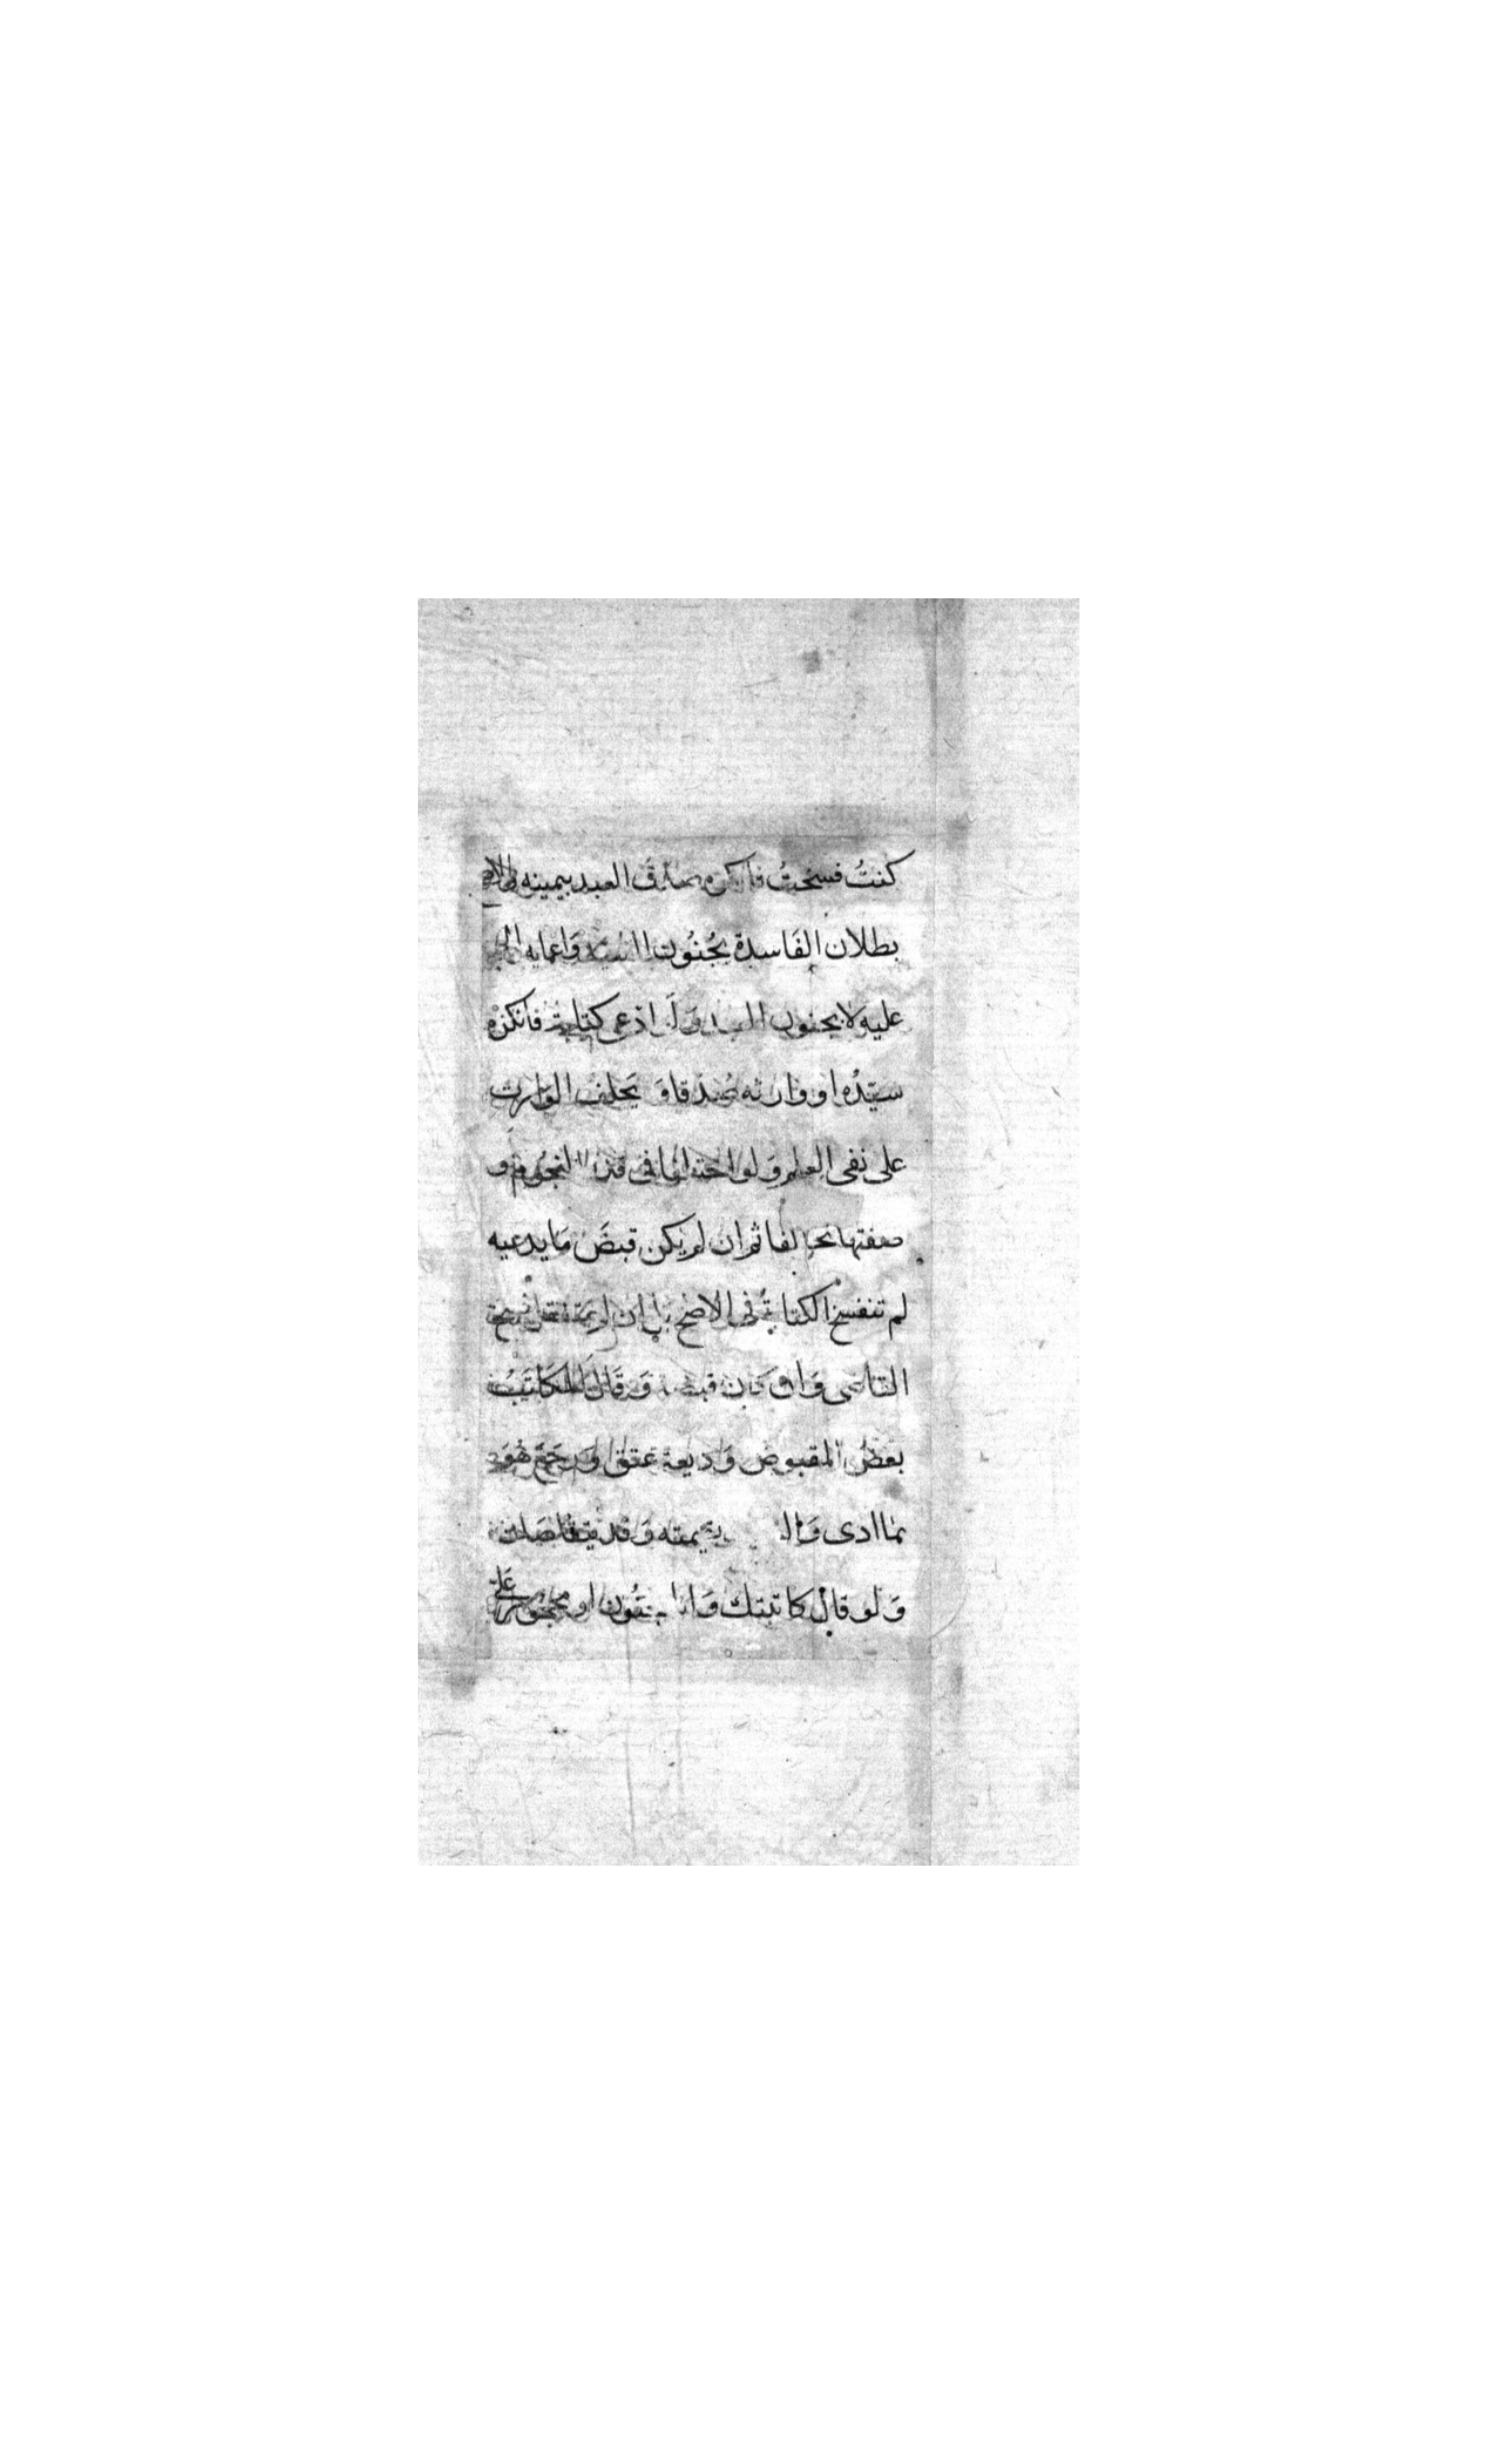 كنتُ فسختُ فانكره صدق العبد بيمينه والاصح
بطلان الفَاسدة بجُنُون السيد وَاغمايه
عليه لا بجنون العبد وَلَو ادّعى كتابة فانكره
سيّدُه او وارثه صُدقا وَ يَحلف الوَارث
على نفى العلم وَلو اختلفا فى قدر النجُوم و
صفتها تحالفا ثم ان لم يكن قبضَ مَا يدعيه
لم تنفسخ الكتابةُ فى الاصح بل ان لم يتفقا فسخ
القاضى وَان كان قبضه وَ قَال المكَاتَبُ
بعضُ المقبوض وَديعة عتق وَ رجَعَ هُوَ
بما ادى وَالسيد بقيمته وَ قد يتقاصّان
وَلو قال كاتبتك وَانا مجنُون او محجُور عَلىّ